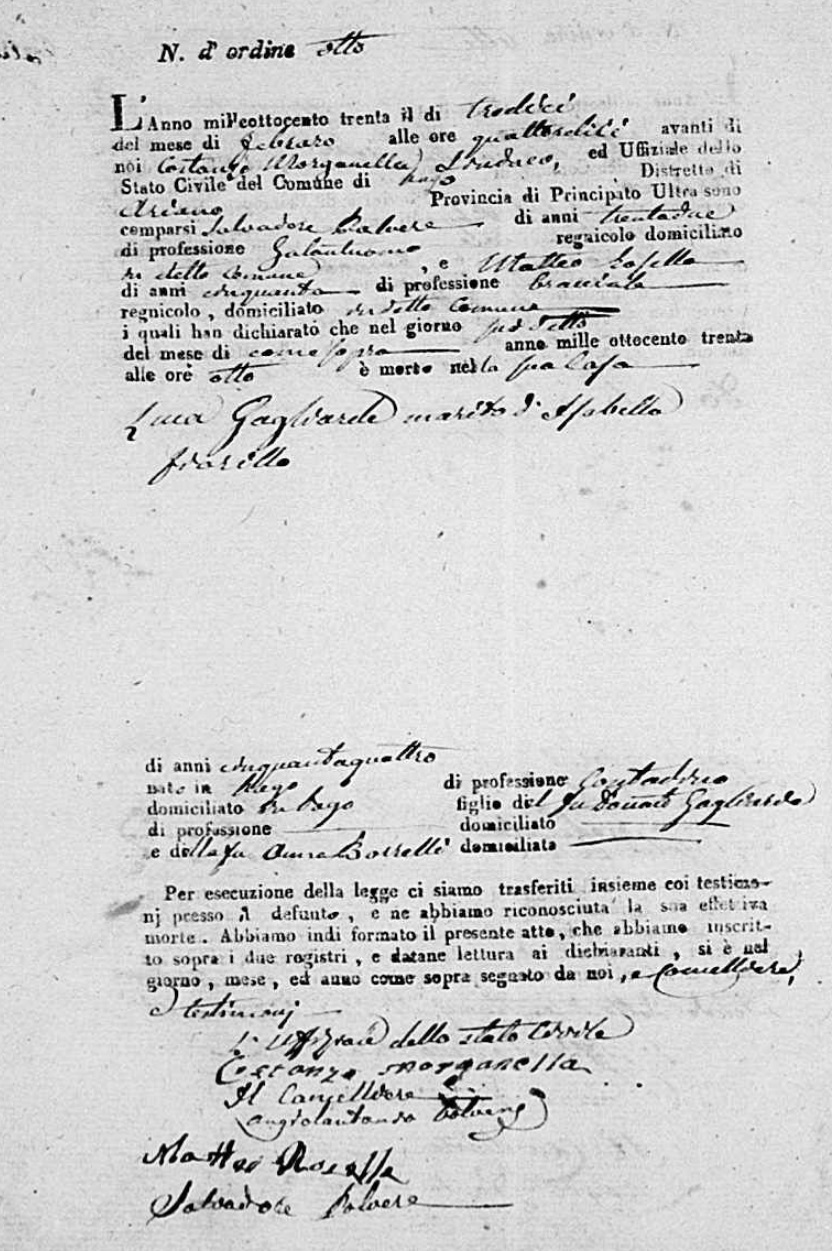 N. d' ordine otto
L'Anno mill'eottocento trenta il di tredici
del mese di febraro alle ore quattordici avanti di
noi Costanzo Morganella Sindaco, ed Uffiziale dello
Stato Civile del Comune di Pago Distretto di
Ariano Provincia di Principato Ultra sono
comparsi Salvadore Polvere di anni trentadue
di professione Galantuomo regnicolo domiciliato
in detto Comune, e Matteo Rosella
di anni cinquanta di professione bracciale
regnicolo, domiciliato in detto Comune
i quali han dichiarato che nel giorno sudetto
del mese di come sopra anno mille ottocento trenta
alle ore otto è morto nella sua Casa
Luca Gagliarde marito d' Isabella
Fiorillo
di anni cinquantaquattro
nato in Pago di professione Contadino
domiciliato in Pago figlio del fu Donato Gagliarde
di professione domiciliato
e della fu Anna Borrelli domiciliata
Per esecuzione della legge ci siamo trasferiti insieme coi testimo-
nj presso il defunto, e ne abbiamo riconosciuta la sua effettiva
morte. Abbiamo indi formato il presente atto, che abbiamo inscrit-
to sopra i due registri, e datane lettura ai dichiaranti, si è nel
giorno, mese, ed anno come sopra segnato da noi, e Cancelliere,
e testimonj
L' Uffiziale dello stato Civile
Costanzo Morganella
Il Cancelliere
Angiolantonio Polvere
Matteo Rosella
Salvadore Polvere